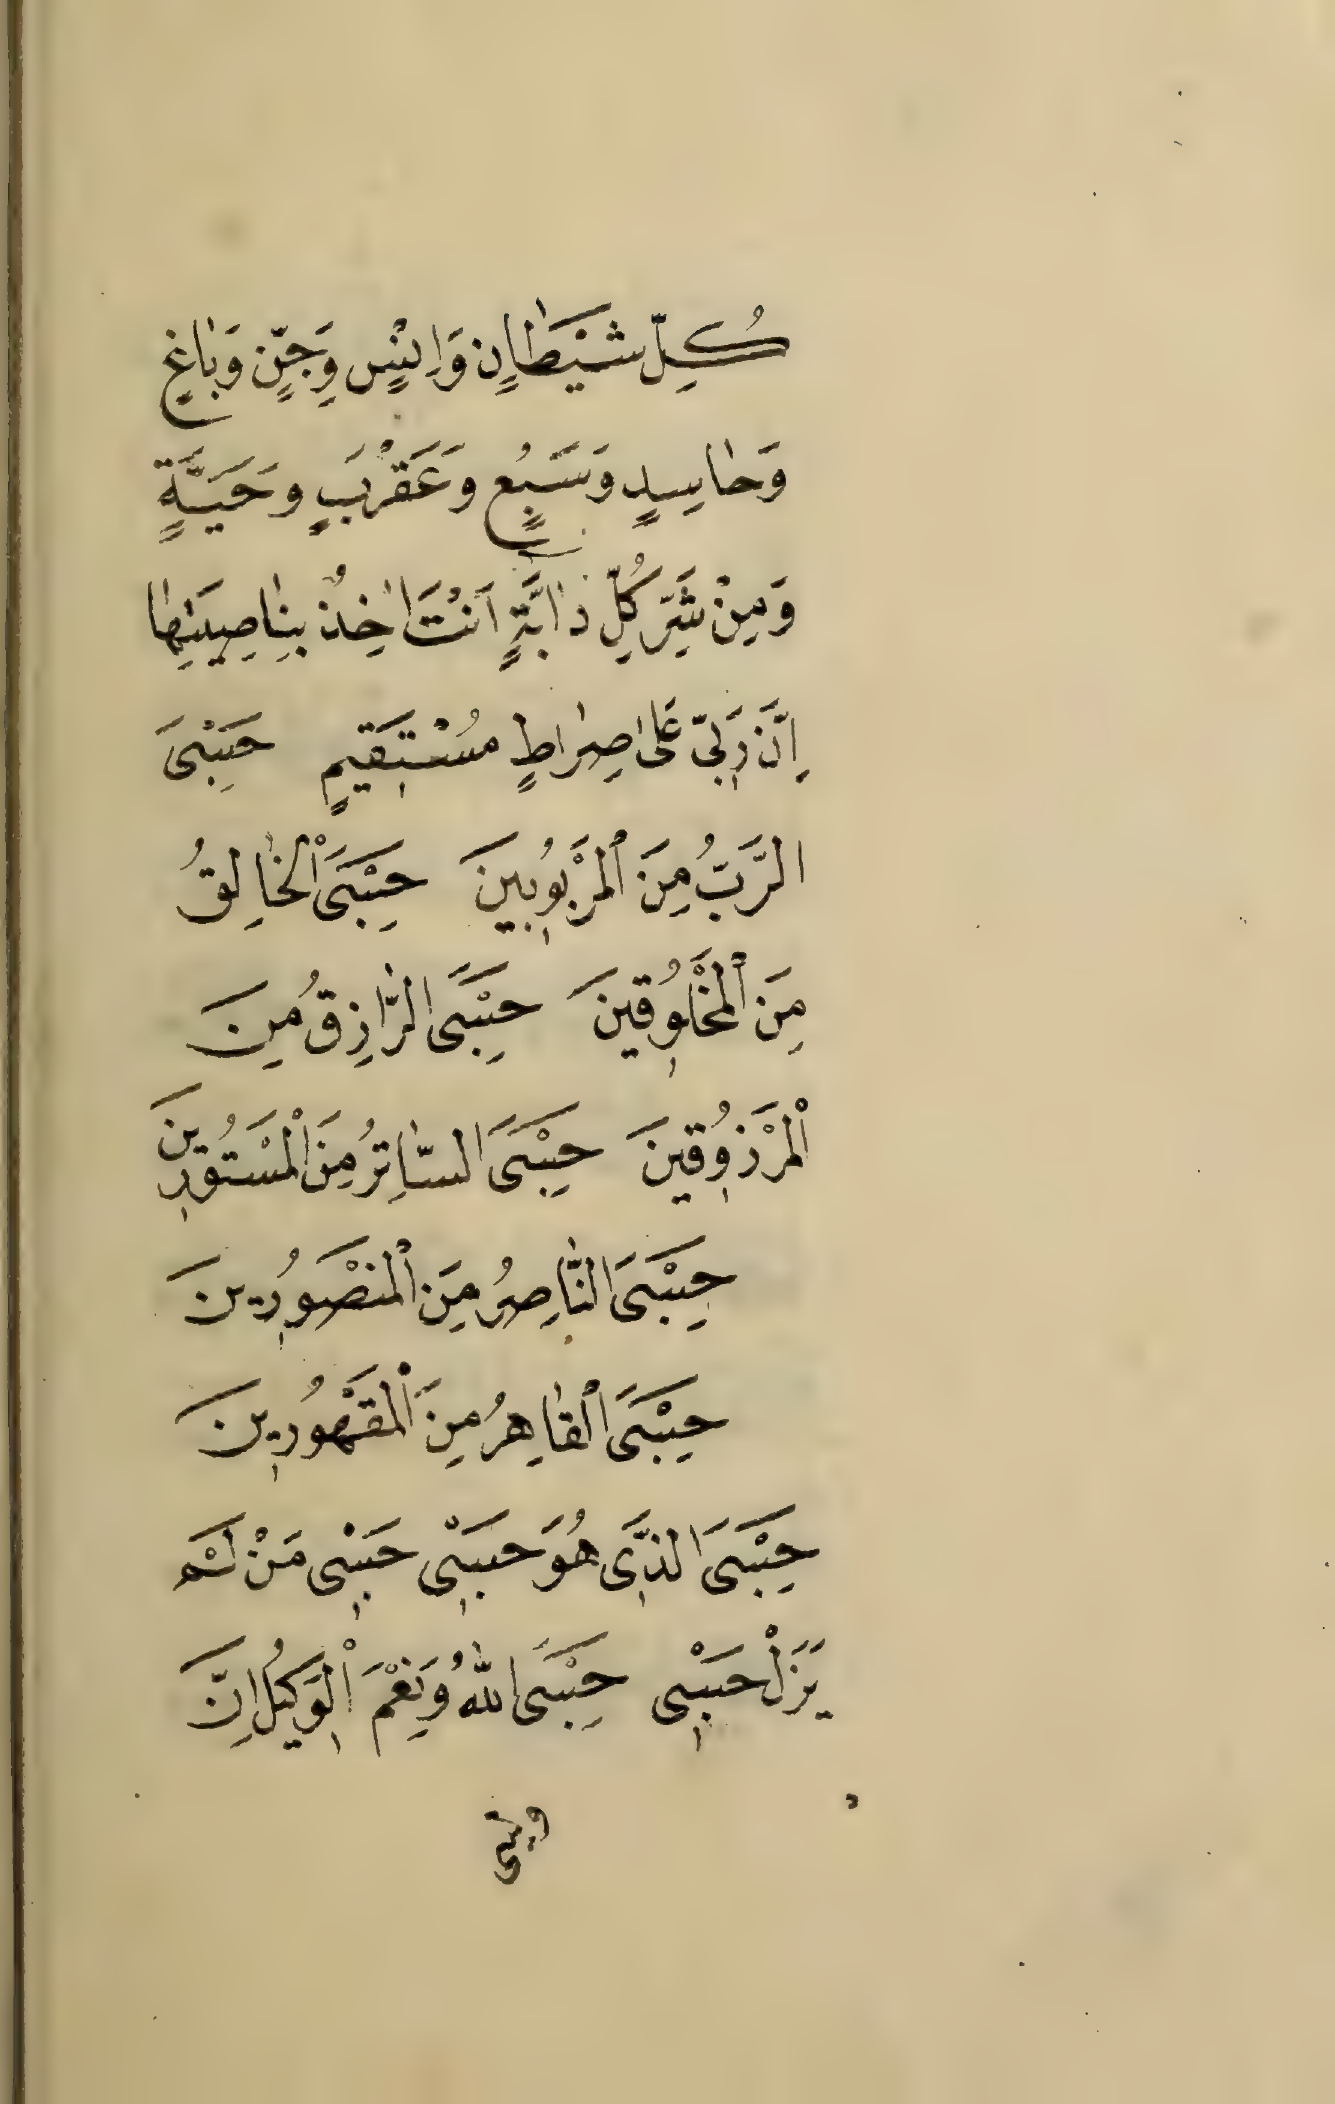 كُلِّ شَيْطَانٍ وَاِنْسٍ وَجِنٍّ وَبَاغٍ
وَحَاسِدٍ وَسَبُعٍ وَعَقْرَبٍ وَحَيَّةٍ
وَمِنْ شَرِّ كُلِّ دَابَّةٍ اَنْتَ اٰخِذٌ بِنَاصِيَتِهَا
اِنَّ رَبِّي عَلٰى صِرَاطٍ مُسْتَقِيمٍ حَسْبِيَ
الرَّبُّ مِنَ الْمَرْبُوبِينَ حَسْبِيَ الْخَالِقُ
مِنَ الْمَخْلُوقِينَ حَسْبِيَ الرَّازِقُ مِنَ
الْمَرْزُوقِينَ حَسْبِيَ السَّاتِرُ مِنَ الْمَسْتُورِينَ
حَسْبِيَ النَّاصِرُ مِنَ الْمَنْصُورِينَ
حَسْبِيَ الْقَاهِرُ مِنَ الْمَقْهُورِينَ
حَسْبِيَ الَّذِي هُوَ حَسْبِي حَسْبِي مَنْ لَمْ
يَزَلْ حَسْبِي حَسْبِيَ اللّٰهُ وَنِعْمَ الْوَكِيلُ اِنَّ